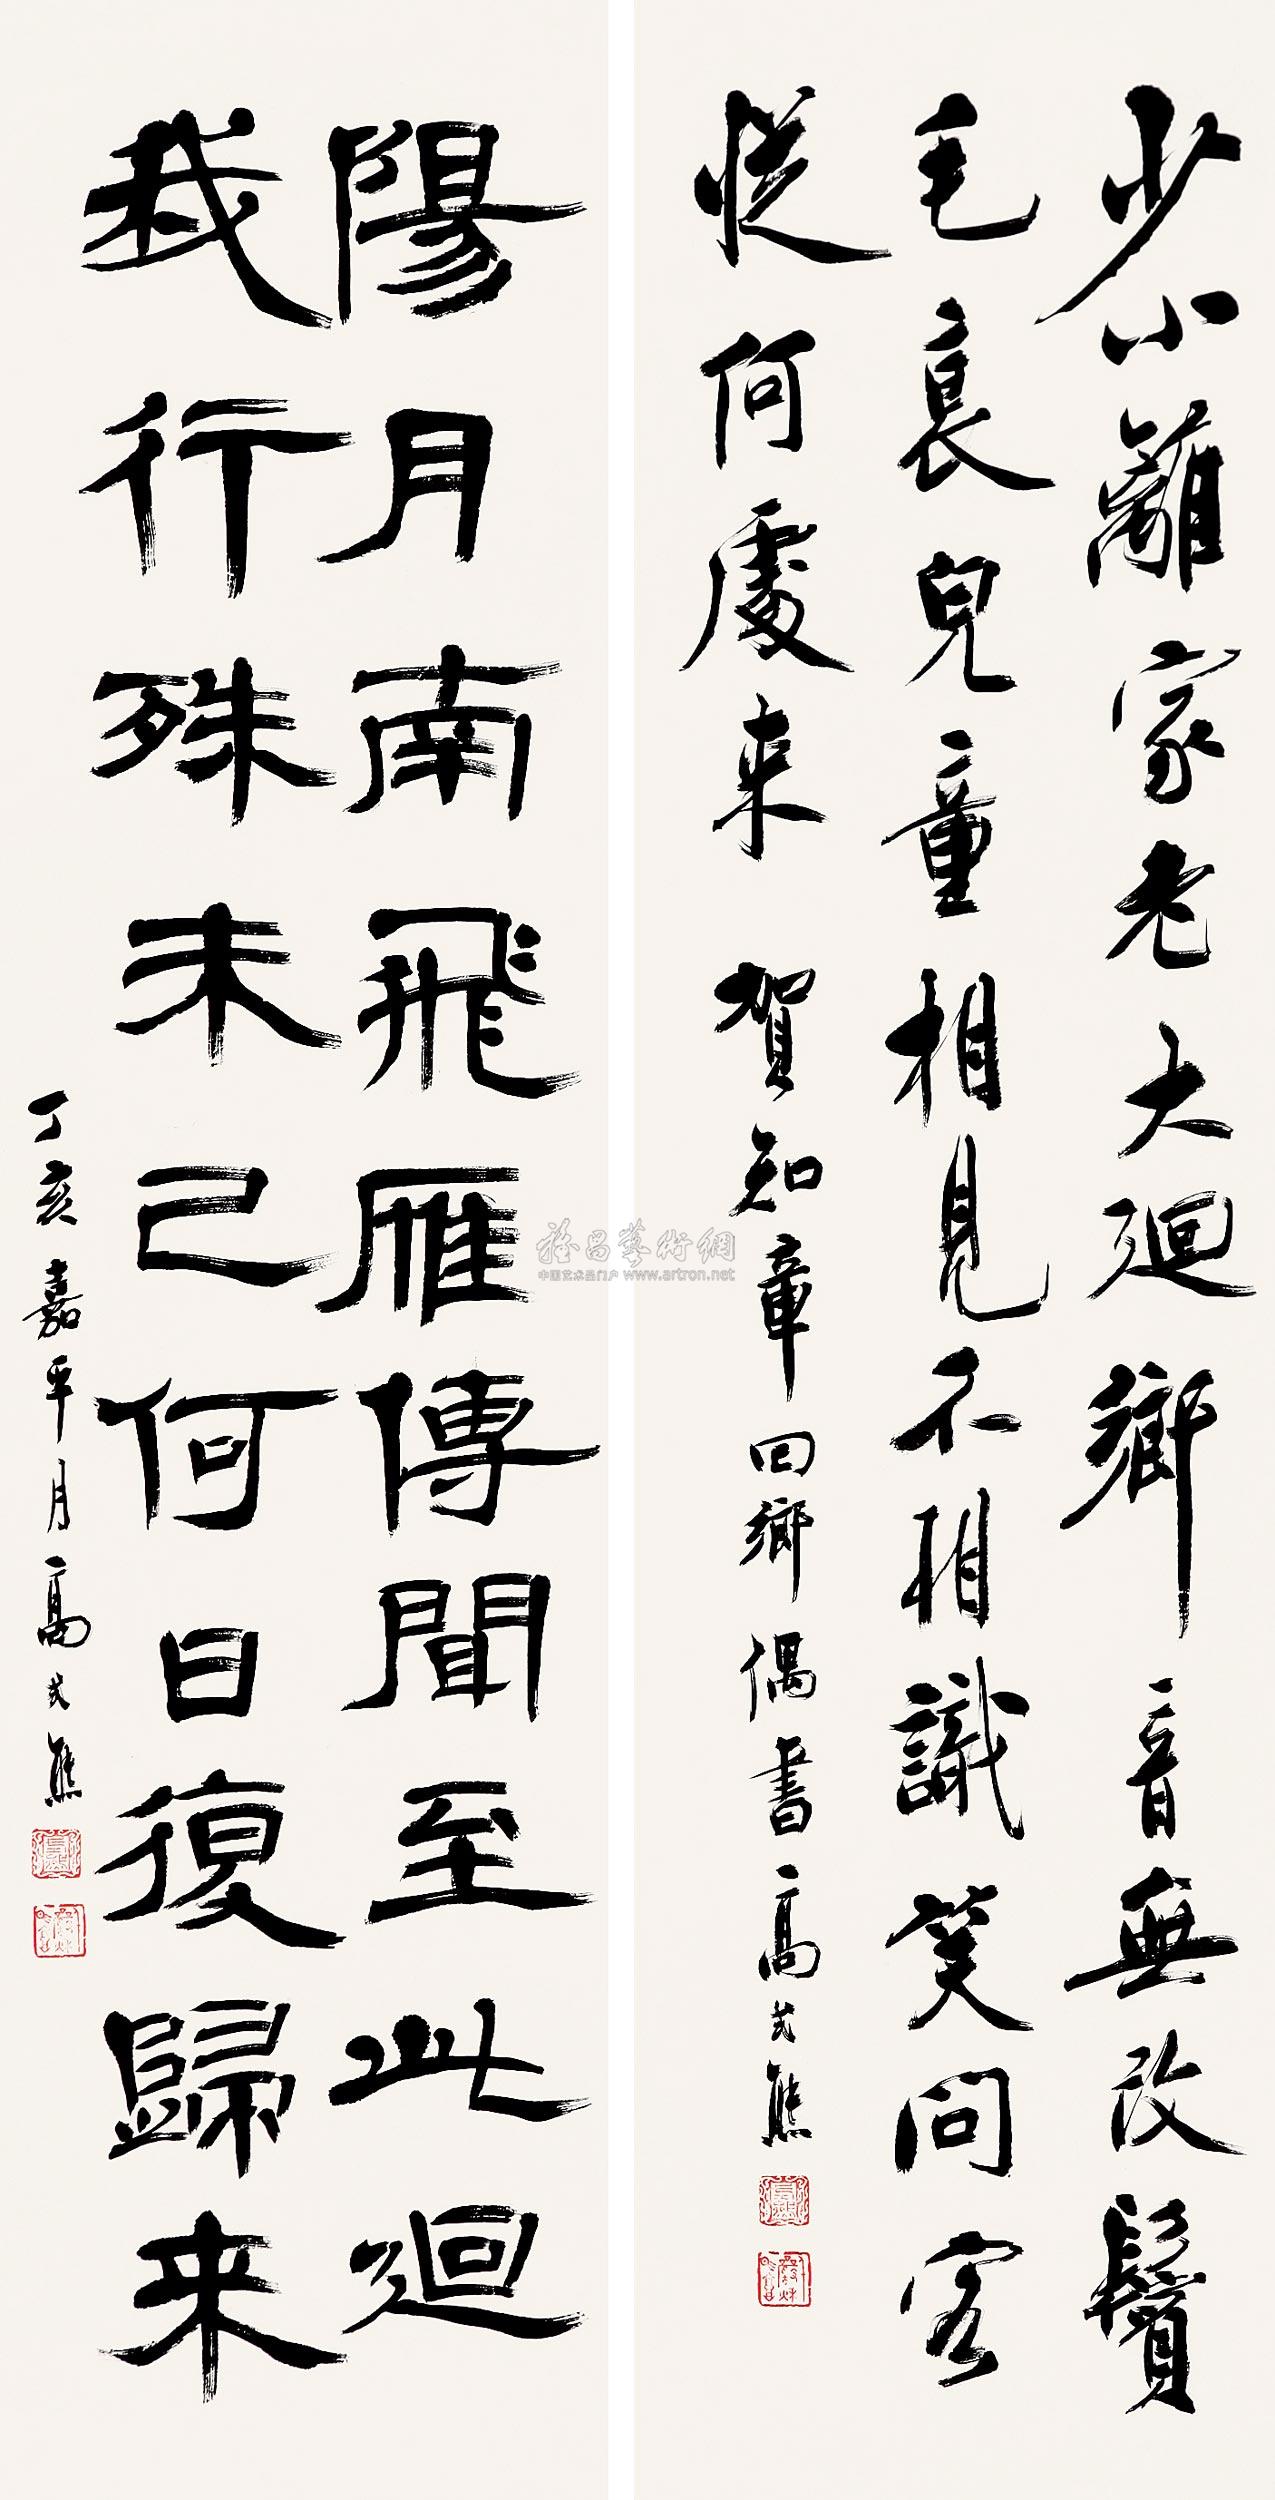 少小離家老大迴鄉音無改鬢
毛衰兒童相見不相識笑問客
從何處來 賀知章回鄉偶書 高式熊
陽月南飛雁傳聞至此迴
我行殊未已何日復歸来
丁亥嘉平月高式熊
雅昌藝術網
中国艺术品门户 www.artron.net